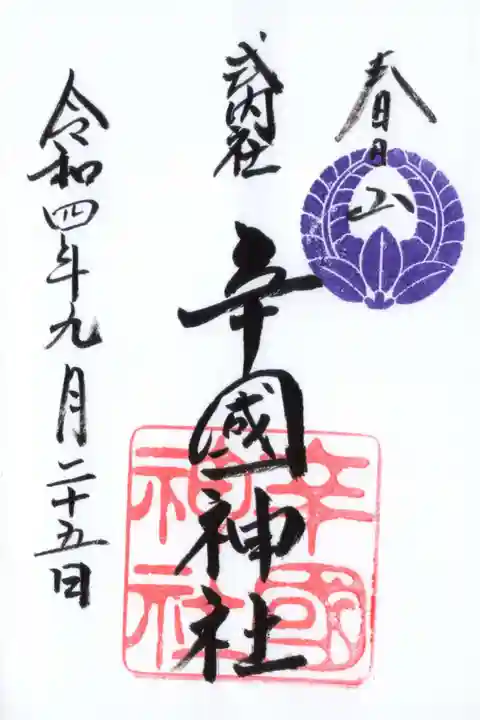 春日山
式内社
辛國神社
令和四年九月二十五日
辛國
神社